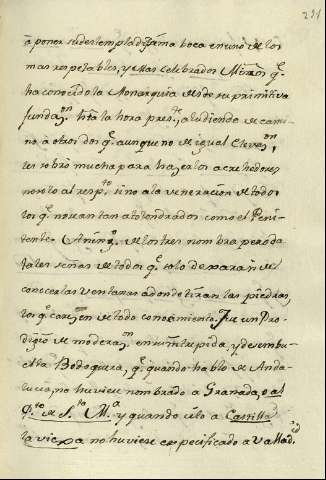 231
à poner su destempladissima boca en uno de los
mas respetables, y mas celebrados Minros qe.
ha conocido la Monarquia desde su primitiva
fundaon. hta la hora preste, aludiendo de cami-
no à otros dos qe. aunque no de igual Elevaon,
les sobrò mucha para hazerlos acrehedores
no solo al respto. sino a la veneracion de todos
los qe. no sean tan atolondrados como el Peni-
tente. A ninge. de los tres nombra pero da
tales señas de todos qe. solo dexaràn de
conocerlas ventanas adonde tiran las piedras,
los qe. carezn. de todo conocimiento. Fue un Pro-
digio de moderaon. en su intrepida, y desembu-
elta Bodoquera, qe. quando hablò de Anda-
lucia, no huviese nombrado a Granada, o al
Pto. de S. ta M. a y quando citò a Castilla
la vieja no huviese especificado a Vallad.id